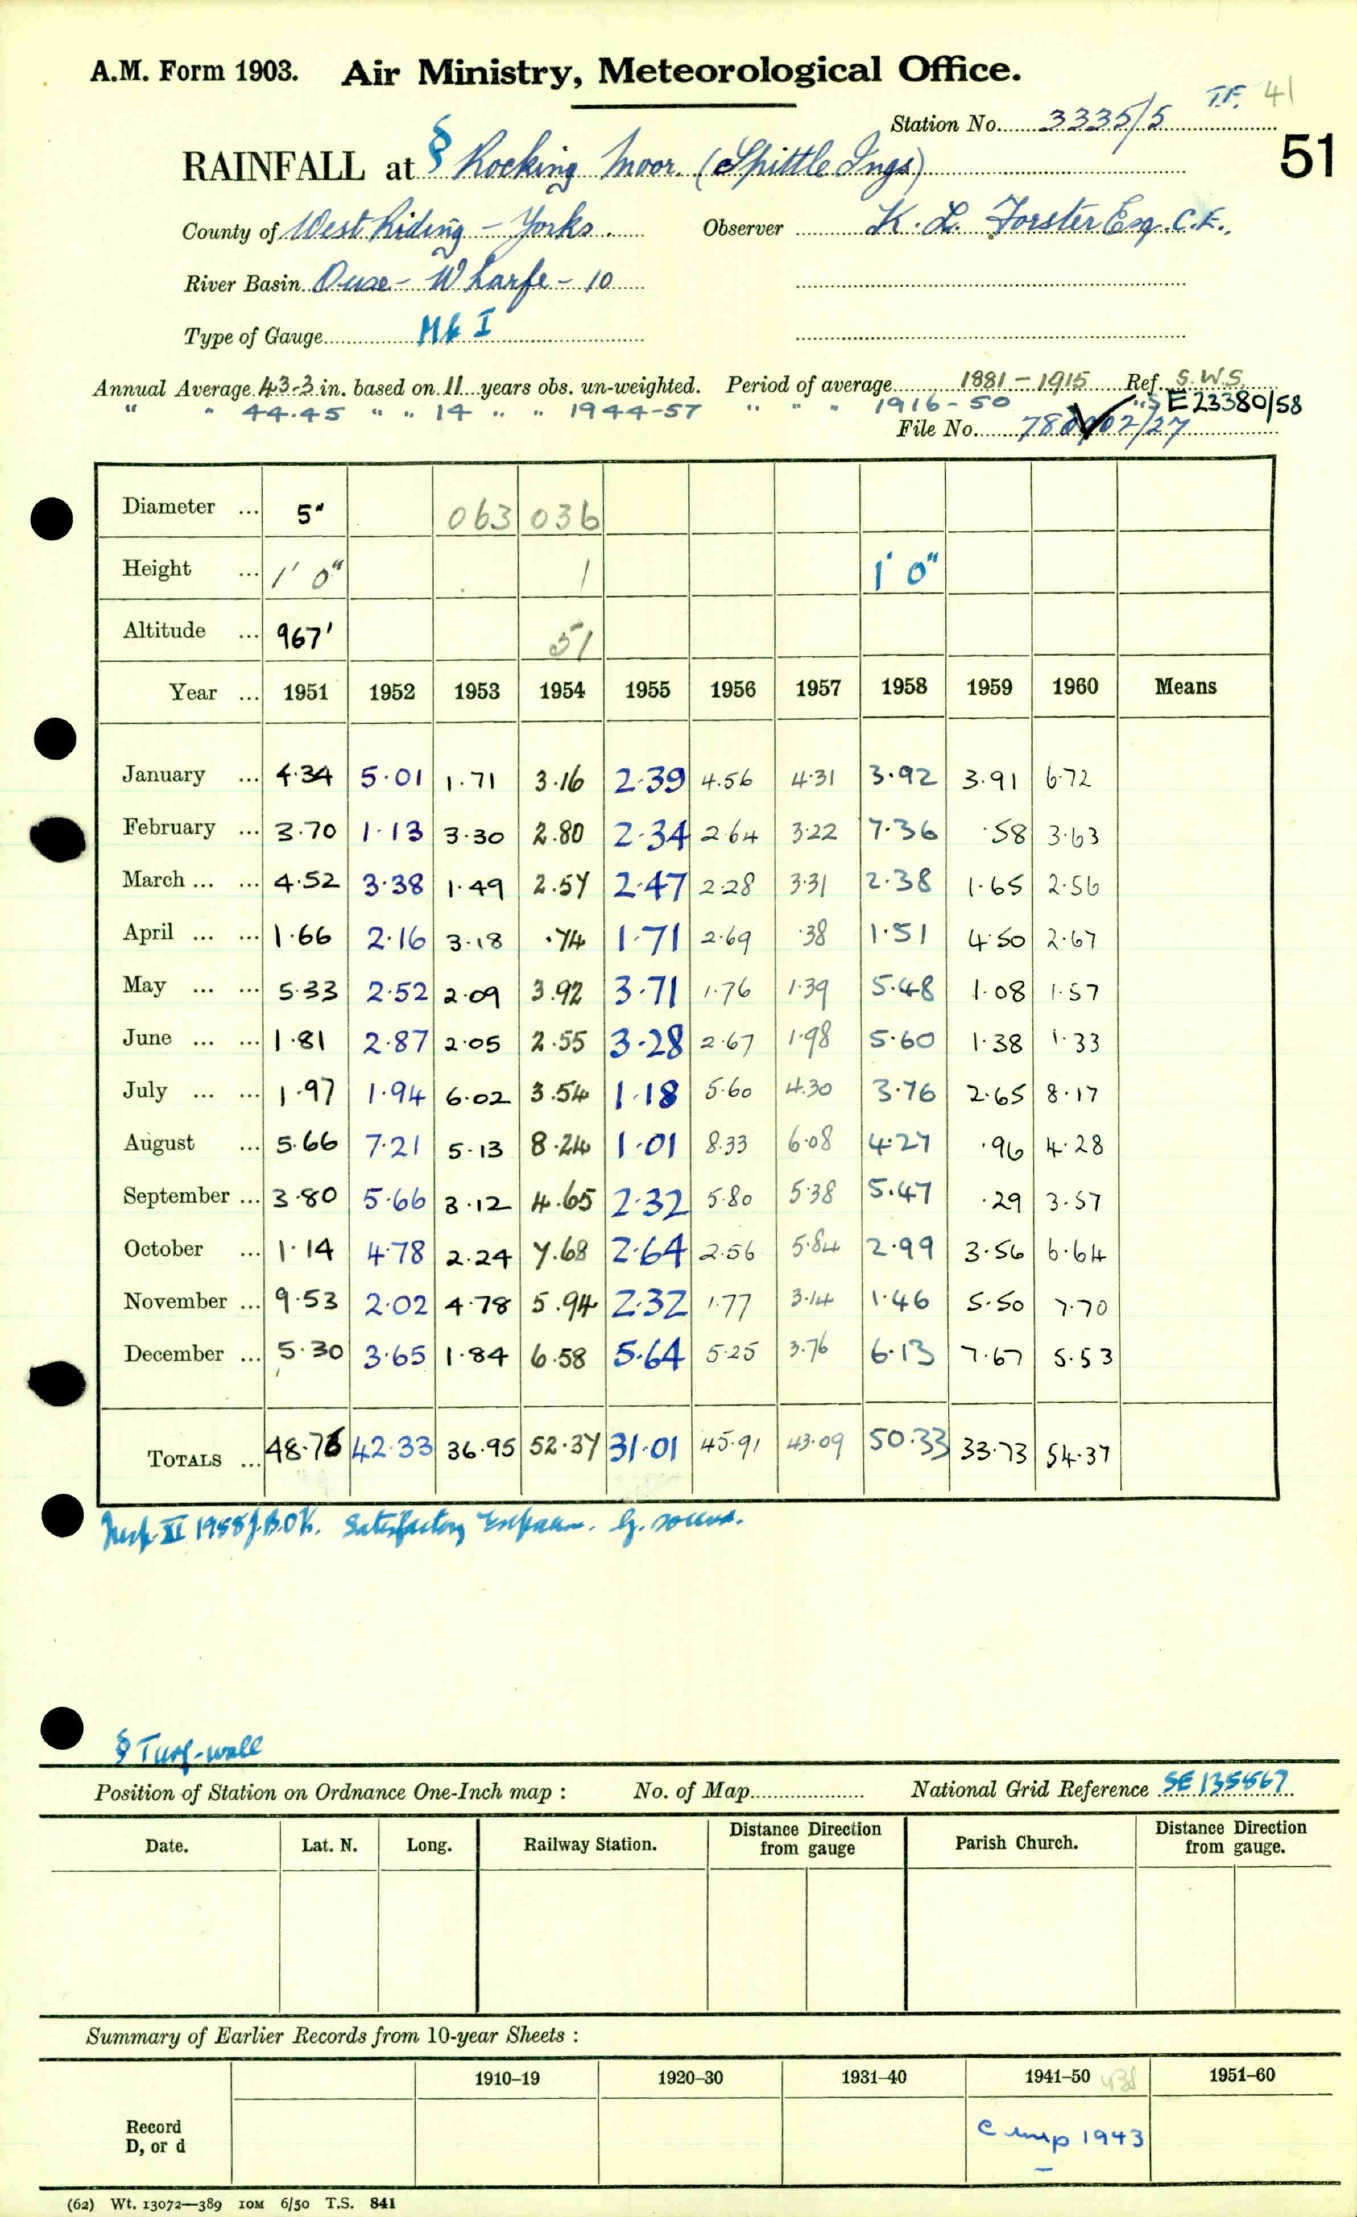 A.M. Form 1903. Air Ministry, Meteorological Office.
T.F. 41
Station No. 3335/5
51
RAINFALL at § Rocking Moor. (Spittle Ings)
County of West Riding – Yorks. Observer K. L. Forster Esq. C.E.,
River Basin Ouse – Wharfe – 10
Type of Gauge Mk I
Annual Average 43.3 in. based on 11 years obs. un-weighted. Period of average 1881–1915 Ref. S.W.S.
" " 44.45 " " 14 " " 1944-57 " " " 1916-50 "S E23380/58
File No.
Diameter ... 5" 063 036
Height ... 1' 0" 1 1' 0"
Altitude ... 967' 51
Year ... 1951 1952 1953 1954 1955 1956 1957 1958 1959 1960 Means
January ... 4.34 5.01 1.71 3.16 2.39 4.56 4.31 3.92 3.91 6.72
February ... 3.70 1.13 3.30 2.80 2.34 2.64 3.22 7.36 .58 3.63
March ... ... 4.52 3.38 1.49 2.57 2.47 2.28 3.31 2.38 1.65 2.56
April ... ... 1.66 2.16 3.18 .74 1.71 2.69 .38 1.51 4.50 2.67
May ... ... 5.33 2.52 2.09 3.92 3.71 1.76 1.39 5.48 1.08 1.57
June ... ... 1.81 2.87 2.05 2.55 3.28 2.67 1.98 5.60 1.38 1.33
July ... ... 1.97 1.94 6.02 3.54 1.18 5.60 4.30 3.76 2.65 8.17
August ... 5.66 7.21 5.13 8.24 1.01 8.33 6.08 4.27 .96 4.28
September ... 3.80 5.66 3.12 4.65 2.32 5.80 5.38 5.47 .29 3.57
October ... 1.14 4.78 2.24 7.68 2.64 2.56 5.84 2.99 3.56 6.64
November ... 9.53 2.02 4.78 5.94 2.32 1.77 3.14 1.46 5.50 7.70
December ... 5.30 3.65 1.84 6.58 5.64 5.25 3.76 6.13 7.67 5.53
TOTALS ... 48.76 42.33 36.95 52.37 31.01 45.91 43.09 50.33 33.73 54.37
XI 1958 Satisfactory
§ Turf-wall
Position of Station on Ordnance One-Inch map : No. of Map National Grid Reference SE 135567
Date. Lat. N. Long. Railway Station. Distance from Direction gauge Parish Church. Distance from Direction gauge.
Summary of Earlier Records from 10-year Sheets :
1910–19 1920–30 1931–40 1941–50 1951–60
Record
D, or d
Comp 1943
(62) Wt. 13072—389 10M 6/50 T.S. 841